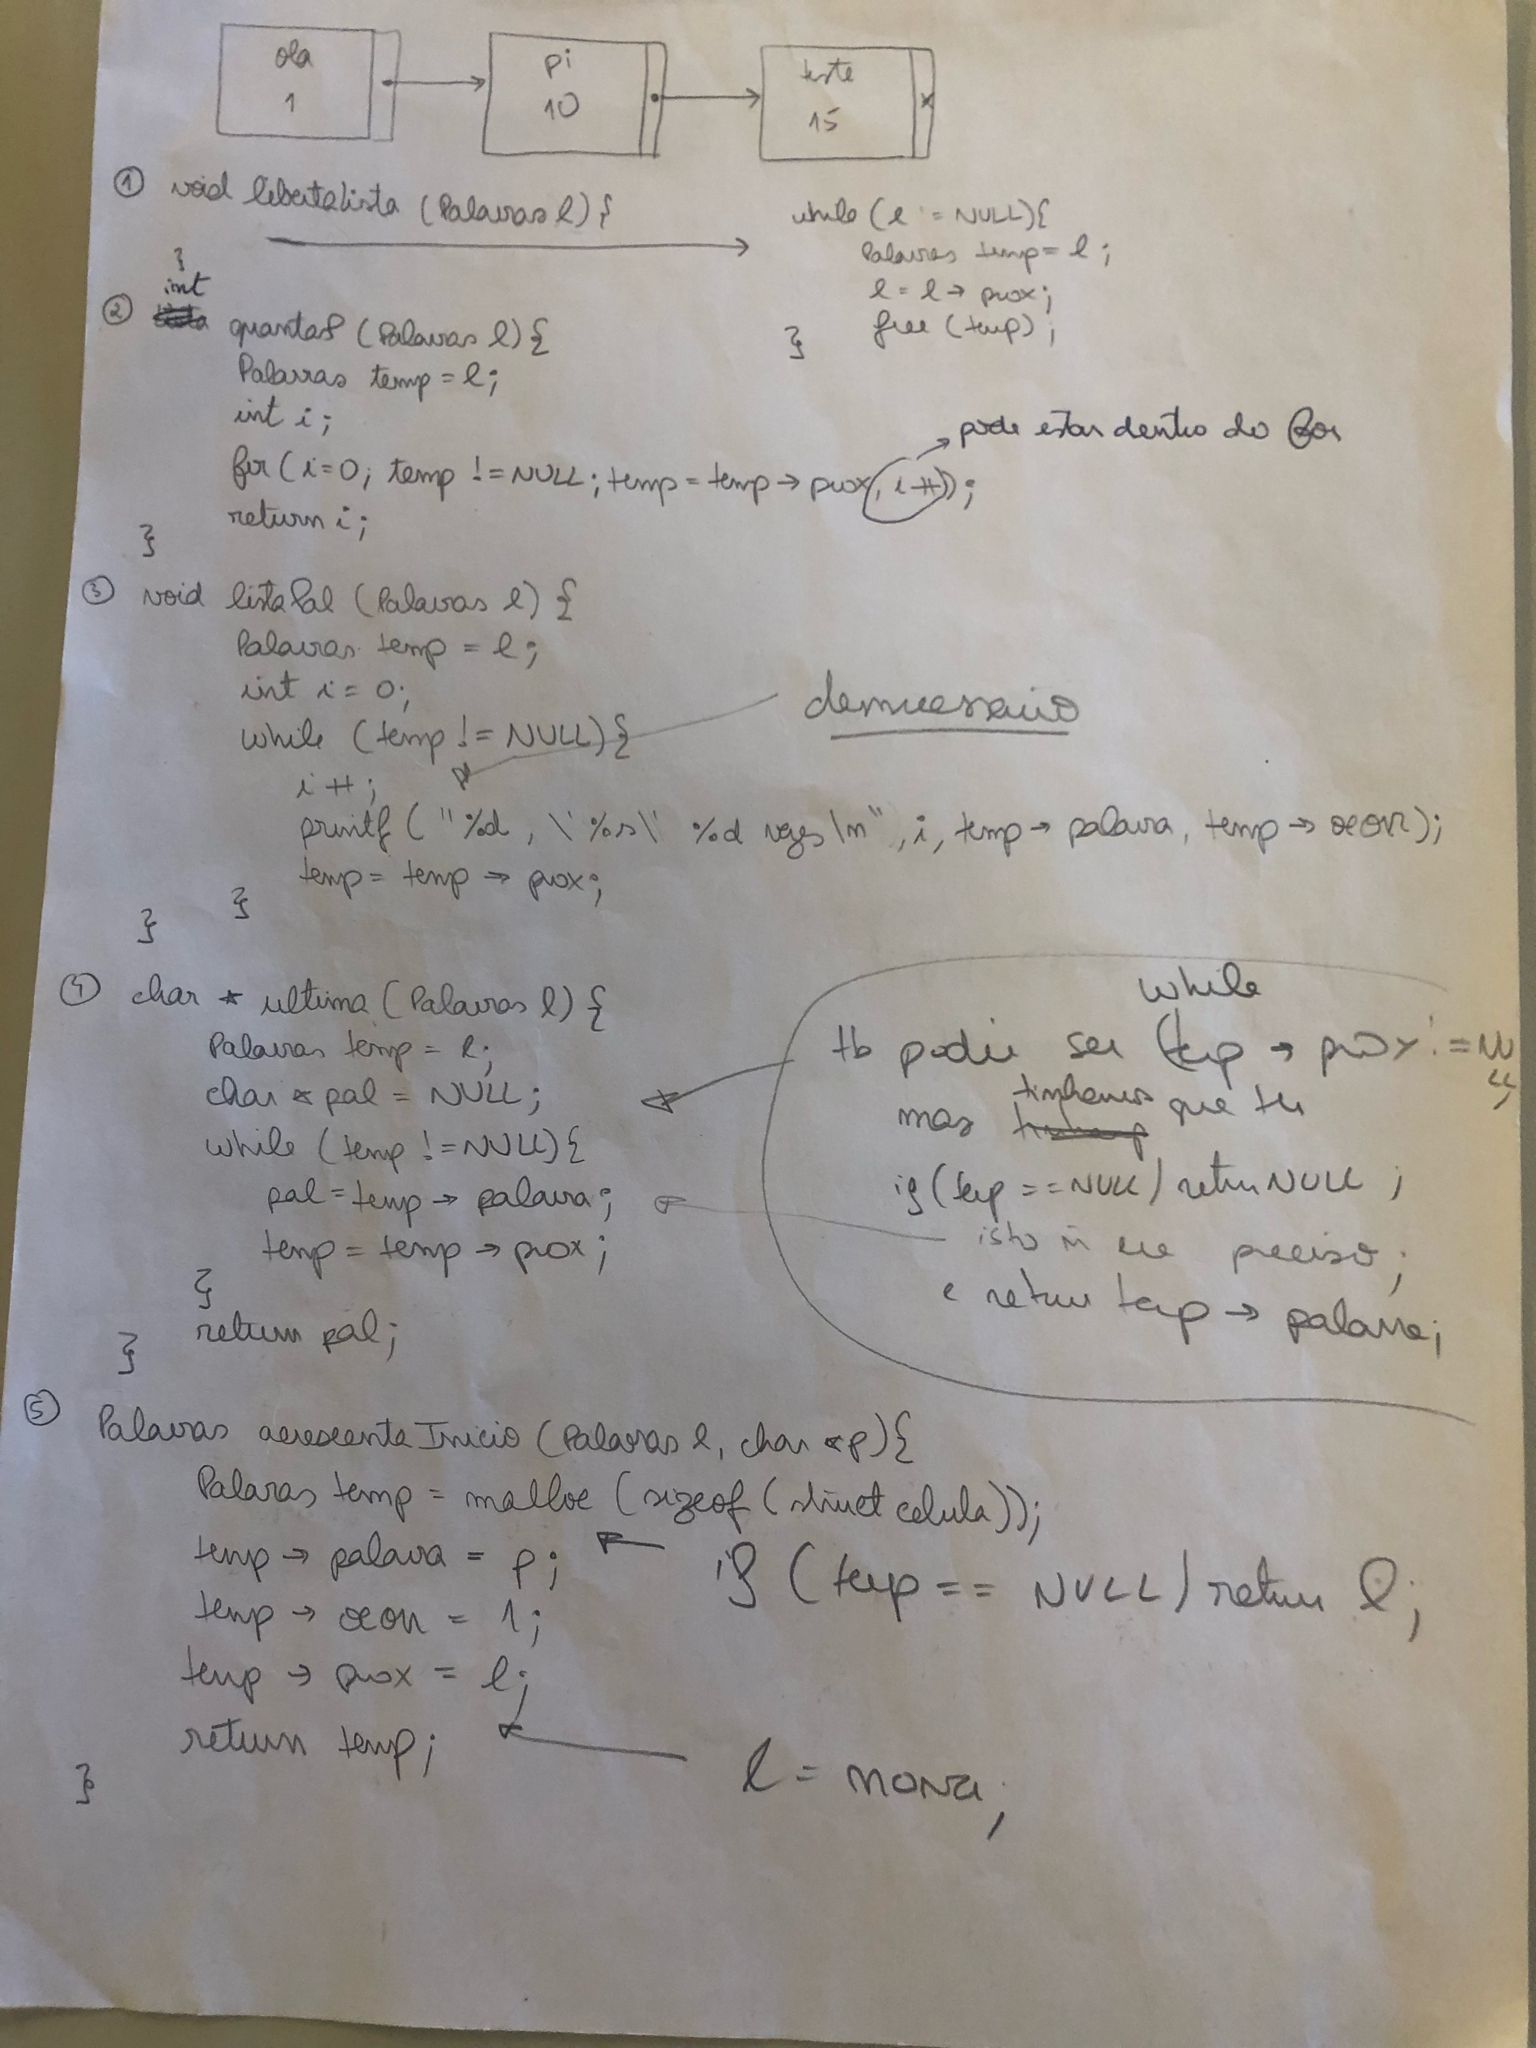 ola
1
pi
10
teste
15
x
① void libertalista (Palavras l) {
}
while (l != NULL) {
Palavras temp = l;
l = l → prox;
free (temp);
}
② int quantasP (Palavras l) {
Palavras temp = l;
int i;
for (i=0; temp != NULL; temp = temp → prox, i++);
return i;
}
pode estar dentro do for
③ void listaPal (Palavras l) {
Palavras temp = l;
int i = 0;
while (temp != NULL) {
i++;
printf ("%d, \'%s\' %d vezes \n", i, temp → palavra, temp → ocorr);
temp = temp → prox;
}
}
desnecessario
④ char * ultima (Palavras l) {
Palavras temp = l;
char * pal = NULL;
while (temp != NULL) {
pal = temp → palavra;
temp = temp → prox;
}
return pal;
}
while
tb podia ser (temp → prox != NULL)
mas tinhamos que ter
if (temp == NULL) return NULL;
isto ñ era preciso;
e return temp → palavra;
⑤ Palavras acrescentaInicio (Palavras l, char *p) {
Palavras temp = malloc (sizeof (struct celula));
temp → palavra = p;
if (temp == NULL) return l;
temp → ocorr = 1;
temp → prox = l;
return temp;
l = nova;
}